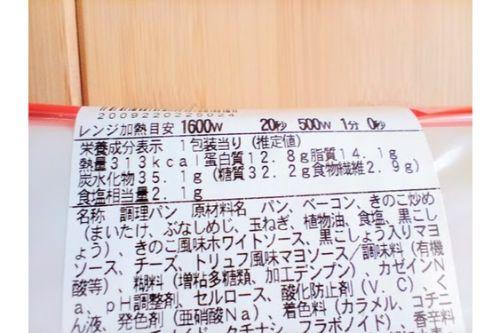 2009220225024
レンジ加熱目安 1600W 20秒 500W 1分 0秒
栄養成分表示 1包装当り (推定値)
熱量313kcal蛋白質12.8g脂質14.1g
炭水化物35.1g(糖質32.2g食物繊維2.9g)
食塩相当量2.1g
名称 調理パン 原材料名 パン、ベーコン、きのこ炒め
(まいたけ、ぶなしめじ、玉ねぎ、植物油、食塩、黒こし
ょう)、きのこ風味ホワイトソース、黒こしょう入りマヨ
ソース、チーズ、トリュフ風味マヨソース/調味料(有機
酸等)、糊料(増粘多糖類、加工デンプン)、カゼインN
a、pH調整剤、セルロース、酸化防止剤(V.C)、く
ん液、発色剤(亜硝酸Na)、着色料(カラメル、コチニ
、カロチノイド、クチナシ、フラボノイド)、香辛料